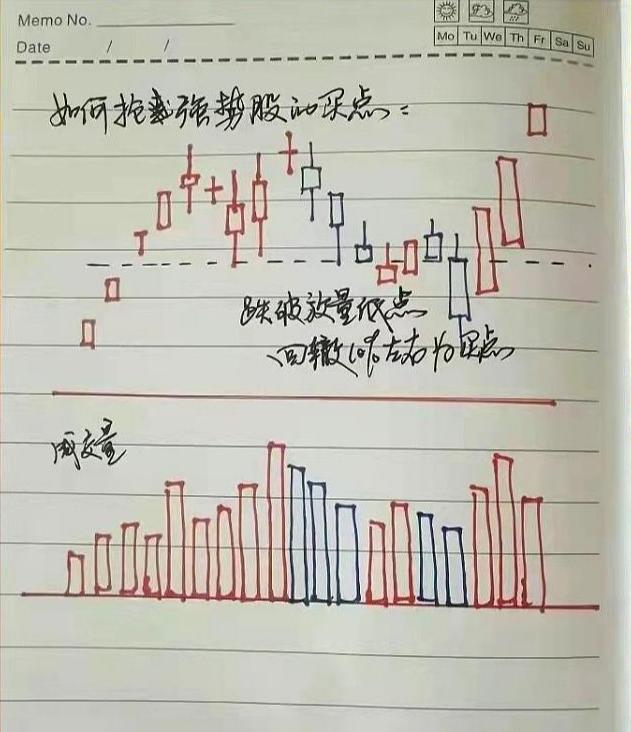 Memo No.
Mo Tu We Th Fr Sa Su
Date / /
如何抢强势股的买点：
跌破放量低点
回撤10%左右为买点
成交量